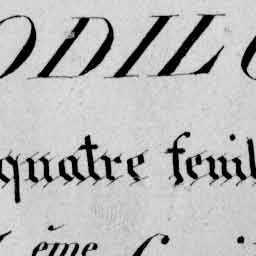 ODIL
quatre feuil
ème